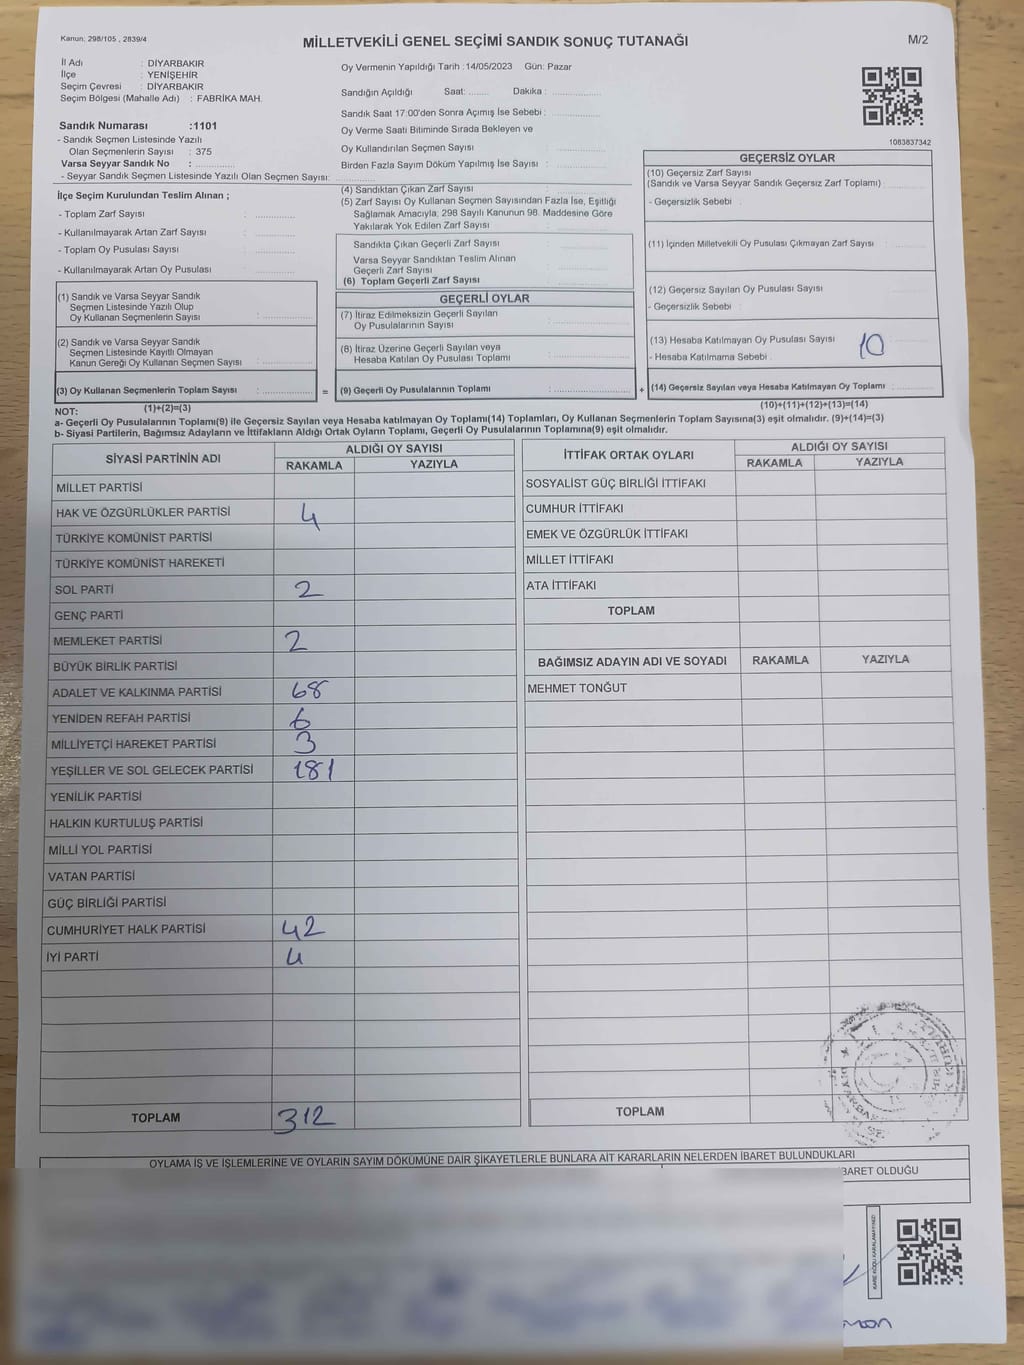 Kanun: 298/105 , 2839/4
MİLLETVEKİLİ GENEL SEÇİMİ SANDIK SONUÇ TUTANAĞI
M/2
İl Adı : DİYARBAKIR
İlçe : YENİŞEHİR
Seçim Çevresi : DİYARBAKIR
Seçim Bölgesi (Mahalle Adı) : FABRİKA MAH.
Sandık Numarası :1101
- Sandık Seçmen Listesinde Yazılı
Olan Seçmenlerin Sayısı : 375
Varsa Seyyar Sandık No :
- Seyyar Sandık Seçmen Listesinde Yazılı Olan Seçmen Sayısı:
Oy Vermenin Yapıldığı Tarih :14/05/2023 Gün: Pazar
Sandığın Açıldığı Saat: Dakika :
Sandık Saat 17:00'den Sonra Açımış İse Sebebi :
Oy Verme Saati Bitiminde Sırada Bekleyen ve
Oy Kullandırılan Seçmen Sayısı :
Birden Fazla Sayım Döküm Yapılmış İse Sayısı :
1083837342
İlçe Seçim Kurulundan Teslim Alınan ;
- Toplam Zarf Sayısı :
- Kullanılmayarak Artan Zarf Sayısı :
- Toplam Oy Pusulası Sayısı :
- Kullanılmayarak Artan Oy Pusulası :
(1) Sandık ve Varsa Seyyar Sandık
Seçmen Listesinde Yazılı Olup
Oy Kullanan Seçmenlerin Sayısı :
(2) Sandık ve Varsa Seyyar Sandık
Seçmen Listesinde Kayıtlı Olmayan
Kanun Gereği Oy Kullanan Seçmen Sayısı :
(3) Oy Kullanan Seçmenlerin Toplam Sayısı :
(1)+(2)=(3)
(4) Sandıktan Çıkan Zarf Sayısı :
(5) Zarf Sayısı Oy Kullanan Seçmen Sayısından Fazla İse, Eşitliği
Sağlamak Amacıyla, 298 Sayılı Kanunun 98. Maddesine Göre
Yakılarak Yok Edilen Zarf Sayısı :
Sandıkta Çıkan Geçerli Zarf Sayısı :
Varsa Seyyar Sandıktan Teslim Alınan
Geçerli Zarf Sayısı :
(6) Toplam Geçerli Zarf Sayısı :
GEÇERLİ OYLAR
(7) İtiraz Edilmeksizin Geçerli Sayılan
Oy Pusulalarının Sayısı :
(8) İtiraz Üzerine Geçerli Sayılan veya
Hesaba Katılan Oy Pusulası Toplamı :
= (9) Geçerli Oy Pusulalarının Toplamı :
GEÇERSİZ OYLAR
(10) Geçersiz Zarf Sayısı
(Sandık ve Varsa Seyyar Sandık Geçersiz Zarf Toplamı) :
- Geçersizlik Sebebi :
(11) İçinden Milletvekili Oy Pusulası Çıkmayan Zarf Sayısı :
(12) Geçersiz Sayılan Oy Pusulası Sayısı :
- Geçersizlik Sebebi :
(13) Hesaba Katılmayan Oy Pusulası Sayısı : 10
- Hesaba Katılmama Sebebi :
+ (14) Geçersiz Sayılan veya Hesaba Katılmayan Oy Toplamı :
(10)+(11)+(12)+(13)=(14)
NOT:
a- Geçerli Oy Pusulalarının Toplamı(9) ile Geçersiz Sayılan veya Hesaba katılmayan Oy Toplamı(14) Toplamları, Oy Kullanan Seçmenlerin Toplam Sayısına(3) eşit olmalıdır. (9)+(14)=(3)
b- Siyasi Partilerin, Bağımsız Adayların ve İttifakların Aldığı Ortak Oyların Toplamı, Geçerli Oy Pusulalarının Toplamına(9) eşit olmalıdır.
SİYASİ PARTİNİN ADI ALDIĞI OY SAYISI
RAKAMLA YAZIYLA
MİLLET PARTİSİ
HAK VE ÖZGÜRLÜKLER PARTİSİ 4
TÜRKİYE KOMÜNİST PARTİSİ
TÜRKİYE KOMÜNİST HAREKETİ
SOL PARTİ 2
GENÇ PARTİ
MEMLEKET PARTİSİ 2
BÜYÜK BİRLİK PARTİSİ
ADALET VE KALKINMA PARTİSİ 68
YENİDEN REFAH PARTİSİ 6
MİLLİYETÇİ HAREKET PARTİSİ 3
YEŞİLLER VE SOL GELECEK PARTİSİ 181
YENİLİK PARTİSİ
HALKIN KURTULUŞ PARTİSİ
MİLLİ YOL PARTİSİ
VATAN PARTİSİ
GÜÇ BİRLİĞİ PARTİSİ
CUMHURİYET HALK PARTİSİ 42
İYİ PARTİ 4
TOPLAM 312
İTTİFAK ORTAK OYLARI ALDIĞI OY SAYISI
RAKAMLA YAZIYLA
SOSYALİST GÜÇ BİRLİĞİ İTTİFAKI
CUMHUR İTTİFAKI
EMEK VE ÖZGÜRLÜK İTTİFAKI
MİLLET İTTİFAKI
ATA İTTİFAKI
TOPLAM
BAĞIMSIZ ADAYIN ADI VE SOYADI RAKAMLA YAZIYLA
MEHMET TONĞUT
TOPLAM
OYLAMA İŞ VE İŞLEMLERİNE VE OYLARIN SAYIM DÖKÜMÜNE DAİR ŞİKAYETLERLE BUNLARA AİT KARARLARIN NELERDEN İBARET BULUNDUKLARI
BARET OLDUĞU
KARE KODU KARALAMAYINIZ!